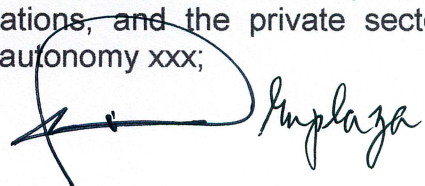 ations, and the private secto
autonomy xxx;